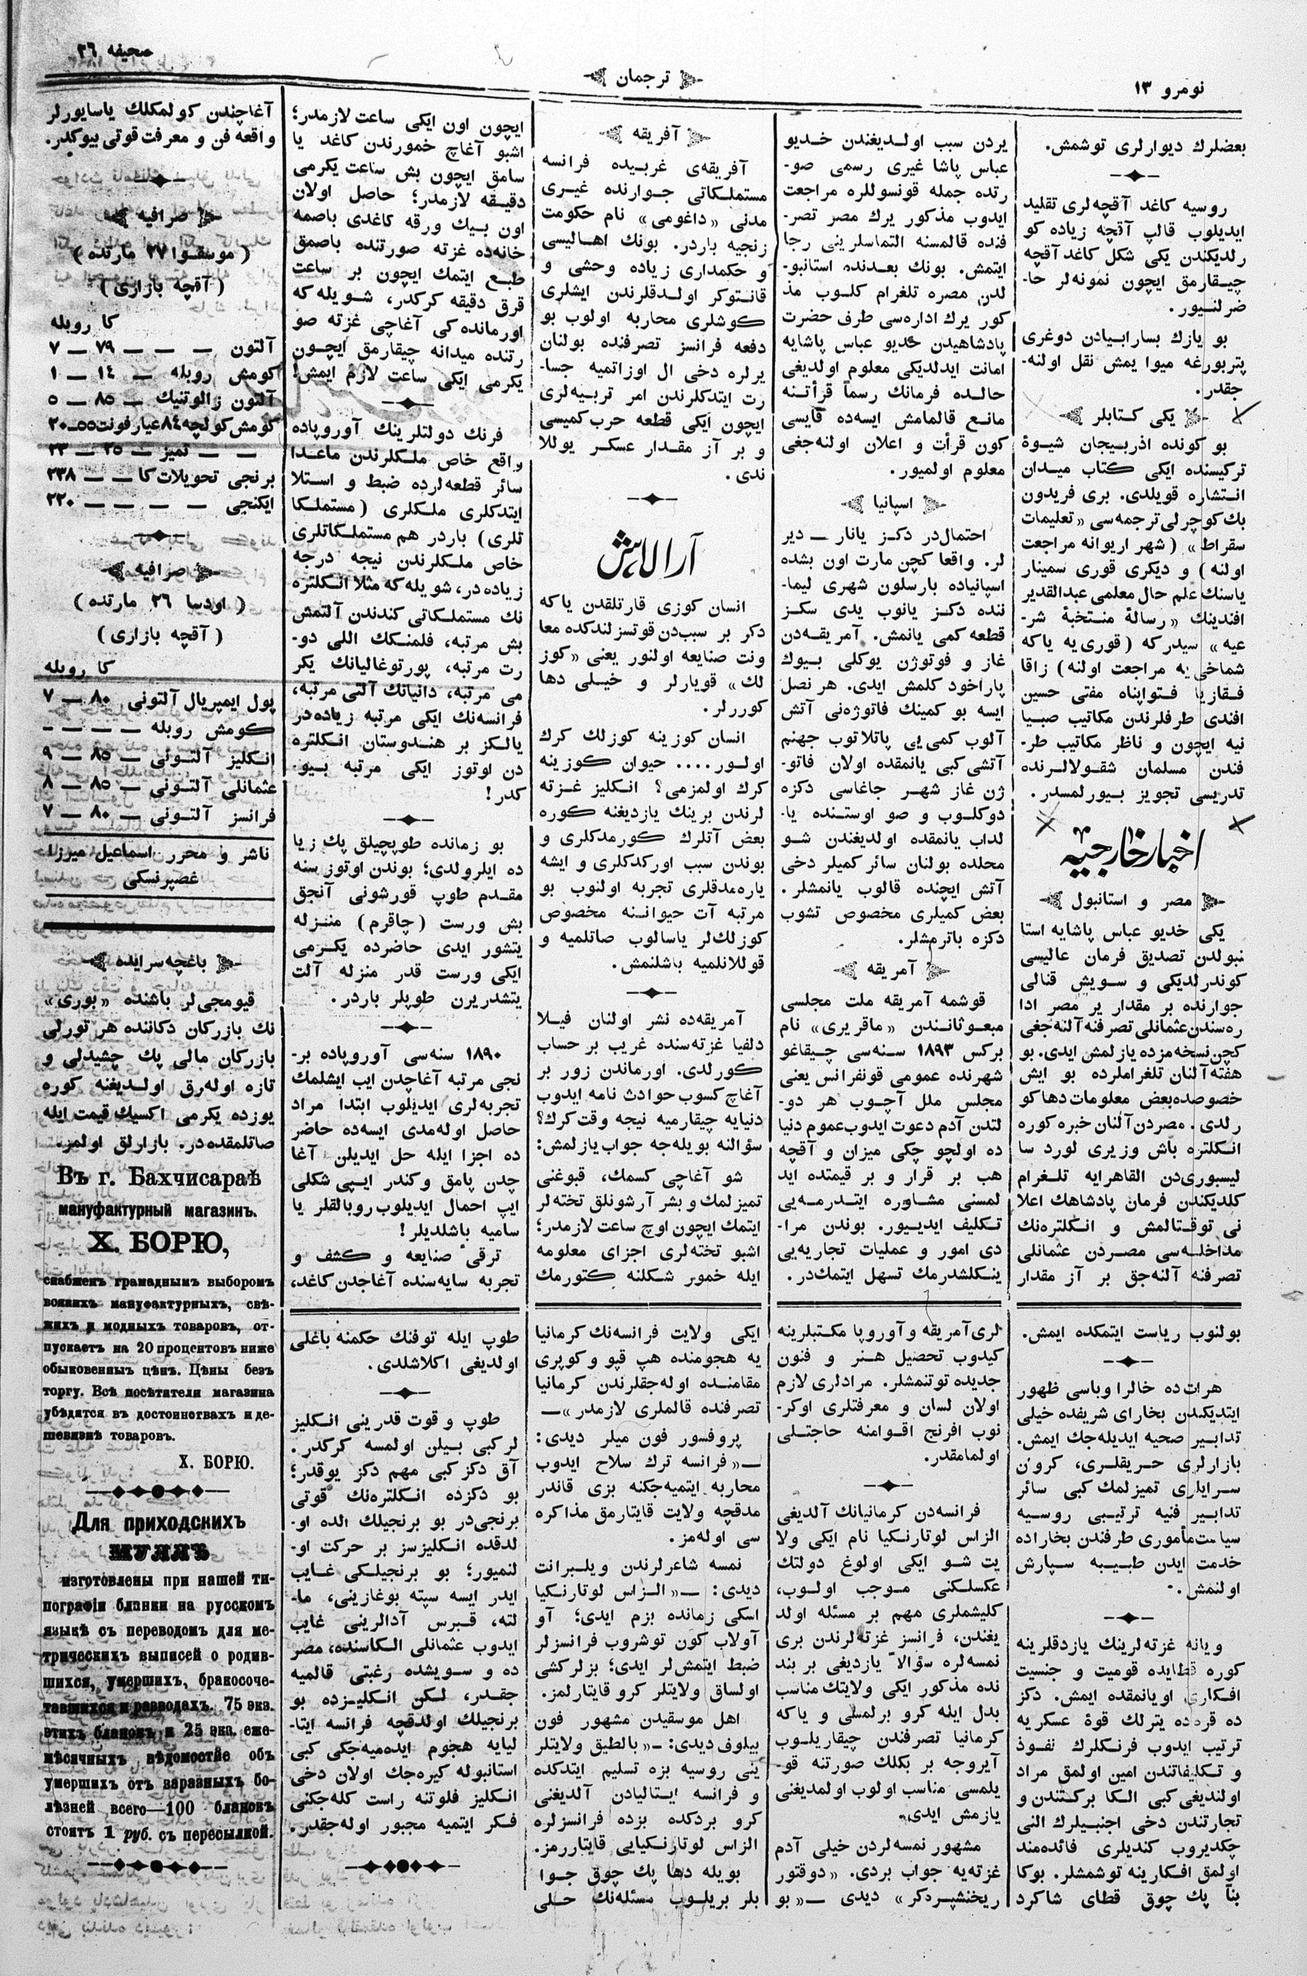 نومرو ۱۳
ترجمان
صحیفه ۲٦
بعضلرك دیوارلری توشمش.
روسیه كاغد آقچه‌لری تقلید
ایدیلوب قالپ آقچه زیاده كو
رلدیكندن یكی شكل كاغد آقچه
چیقارمق ایچون نمونه‌لر حا-
ضرلنیور.
بو یازك بسارابیادن دوغری
پتربورغه میوا یمش نقل اولنه-
جقدر.
یكی كتابلر
بو كونده اذربیجان شیوۀ
تركیسنده ایكی كتاب میدان
انتشاره قویلدی. بری فریدون
بك كوچرلی ترجمه‌سی «تعلیمات
سقراط» (شهر اریوانه مراجعت
اولنه) و دیكری قوری سمینار
یاسنك علم حال معلمی عبدالقدیر
افندینك «رسالۀ منتخبۀ شر-
عیه» سیدر كه (قوری‌یه یا كه
شماخی‌یه مراجعت اولنه) زاقا
فقازیا فتواپناه مفتی حسین
افندی طرفلرندن مكاتیب صبیا
نیه ایچون و ناظر مكاتیب طر-
فندن مسلمان شقولالرنده
تدریسی تجویز بیورلمسدر.
اخبار خارجیه
مصر و استانبول
یكی خدیو عباس پاشایه استا
نبولدن تصدیق فرمان عالیسی
كوندرلدیكی و سویش قنالی
جوارنده بر مقدار یر مصر ادا
ره‌سندن عثمانلی تصرفنه آلنه‌جغی
كچن نسخه مزده یازلمش ایدی. بو
هفته آلنان تلغراملرده بو ایش
خصوصده بعض معلومات دها كو
رلدی. مصردن آلنان خبره كوره
انكلتره باش وزیری لورد سا
لیسبوری‌دن القاهرایه تلغرام
كلدیكندن فرمان پادشاهك اعلا
نی توقتالمش و انكلتره‌نك
مداخله‌سی مصردن عثمانلی
تصرفنه آلنه‌جق بر آز مقدار
یردن سبب اولدیغندن خدیو
عباس پاشا غیری رسمی صو-
رتده جمله قونسوللره مراجعت
ایدوب مذكور یرك مصر تصر-
فنده قالمسنه التماسلرینی رجا
ایتمش. بونك بعدنده استانبو-
لدن مصره تلغرام كلوب مذ
كور یرك اداره‌سی طرف حضرت
پادشاهیدن خدیو عباس پاشایه
امانت ایدلدیكی معلوم اولدیغی
حالده فرمانك رسماً قرأتنه
مانع قالمامش ایسه‌ده قایسی
كون قرأت و اعلان اولنه‌جغی
معلوم اولمیور.
اسپانیا
احتمال‌در دكز یانار — دیر
لر. واقعا كچن مارت اون بشده
اسپانیاده بارسلون شهری لیما-
ننده دكز یانوب یدی سكز
قطعه كمی یانمش. آمریقه‌دن
غاز و فوتوژن یوكلی بیوك
پاراخود كلمش ایدی. هر نصل
ایسه بو كمینك فاتوژه‌نی آتش
آلوب كمی‌یی پاتلاتوب جهنم
آتشی كبی یانمقده اولان فاتو-
ژن غاز شهر جاغاسی دكزه
دوكلوب و صو اوستنده یا-
لداب یانمقده اولدیغندن شو
محلده بولنان سائر كمیلر دخی
آتش ایچنده قالوب یانمشلر.
بعض كمیلری مخصوص تشوب
دكزه باترمشلر.
آمریقه
قوشمه آمریقه ملت مجلسی
مبعوثانندن «ماقریری» نام
بركس ۱۸۹۳ سنه‌سی چیقاغو
شهرنده عمومی قونفرانس یعنی
مجلس ملل آچوب هر دو-
لتدن آدم دعوت ایدوب عموم دنیا
ده اولچو چكی میزان و آقچه
هب بر قرار و بر قیمتده اید
لمسنی مشاوره ایتدرمه‌یی
تكلیف ایدییور. بوندن مرا-
دی امور و عملیات تجاریه‌یی
ینكلشدرمك تسهل ایتمك‌در.
آفریقه
آفریقه‌ی غربیده فرانسه
مستملكاتی جوارنده غیری
مدنی «داغومی» نام حكومت
زنجیه باردر. بونك اهالیسی
و حكمداری زیاده وحشی و
قانتوكر اولدقلرندن ایشلری
كوشلری محاربه اولوب بو
دفعه فرانسز تصرفنده بولنان
یرلره دخی ال اوزاتمیه جسا-
رت ایتدكلرندن امر تربیه‌لری
ایچون ایكی قطعه حرب كمیسی
و بر آز مقدار عسكر یوللا
ندی.
آرالاش
انسان كوزی قارتلقدن یا كه
دكر بر سبب‌دن قوتسزلندكده معا
ونت صنایعه اولنور یعنی «كوز
لك» قویارلر و خیلی دها
كوررلر.
انسان كوزینه كوزلك كرك
اولور.... حیوان كوزینه
كرك اولمزمی؟ انكلیز غزته
لرندن برینك یازدیغنه كوره
بعض آتلرك كورمدكلری و
بوندن سبب اوركدكلری و ایشه
یاره‌مدقلری تجربه اولنوب بو
مرتبه آت حیواننه مخصوص
كوزلك‌لر یاسالوب صاتلمیه و
قوللانلمیه باشلنمش.
آمریقه‌ده نشر اولنان فیلا
دلفیا غزته‌سنده غریب بر حساب
كورلدی. اورماندن زور بر
آغاچ كسوب حوادث نامه ایدوب
دنیایه چیقارمیه نیجه وقت كرك؟
سؤالنه بویله‌جه جواب یازلمش:
شو آغاچی كسمك، قبوغنی
تمیزلمك و بشر آرشونلق تخته‌لر
ایتمك ایچون اوچ ساعت لازمدر؛
اشبو تخته‌لری اجزای معلومه
ایله خمور شكلنه كتورمك
ایچون اون ایكی ساعت لازمدر؛
اشبو آغاچ خمورندن كاغد یا
سامق ایچون بش ساعت یكرمی
دقیقه لازمدر؛ حاصل اولان
اون بیك ورقه كاغدی باصمه
خانه‌ده غزته صورتنده باصمق
طبع ایتمك ایچون بر ساعت
قرق دقیقه كركدر، شویله كه
اورمانده كی آغاچی غزته صو
رتنده میدانه چیقارمق ایچون
یكرمی ایكی ساعت لازم ایمش!
فرنك دولتلرینك آوروپاده
واقع خاص ملكلرندن ماعدا
سائر قطعه‌لرده ضبط و استلا
ایتدكلری ملكلری (مستملكا
تلری) باردر هم مستملكاتلری
خاص ملكلرندن نیجه درجه
زیاده‌در، شویله كه مثلا انكلتره
نك مستملكاتی كندندن آلتمش
بش مرتبه، فلمنكك اللی دو-
رت مرتبه، پورتوغالیانك یكر
می مرتبه، دانیانك آلتی مرتبه،
فرانسه‌نك ایكی مرتبه زیاده‌در
یالكز بر هندوستان انكلتره
دن اوتوز ایكی مرتبه بیو-
كدر!
بو زمانده طوپچیلق پك زیا
ده ایلرولدی؛ بوندن اوتوز سنه
مقدم طوپ قورشونی آنجق
بش ورست (چاقرم) منزله
یتشور ایدی حاضرده یكرمی
ایكی ورست قدر منزله آلت
یتشدیرن طوپلر باردر.
۱۸۹۰ سنه‌سی آوروپاده بر-
نجی مرتبه آغاچدن ایپ ایشلمك
تجربه‌لری ایدیلوب ابتدا مراد
حاصل اوله‌مدی ایسه‌ده حاضر
ده اجزا ایله حل ایدیلن آغا
چدن پامق و كندر ایپی شكلی
ایپ احمال ایدیلوب روبالقلر یا
سامیه باشلدیلر!
ترقیٔ صنایعه و كشف و
تجربه سایه‌سنده آغاجدن كاغد،
آغاچندن كولمكلك یاسایورلر
واقعه فن و معرفت قوتی بیوكدر.
صرافیه
(موسقوا ۲۷ مارتده)
(آقچه بازاری)
كا روبله
آلتون — — — ۷۹ — ۷
كومش روبله — ۱٤ — ۱
آلتون زالوتنیك — ۸۵ — ۵
كومش كولچه ۸٤ عیار فونت ۵۵—۲۰
— — تمیز — ۲۵ — ۲۳
برنجی تحویلات كا — — ۲۳۸
ایكنجی — — — — ۲۲۰
صرافیه
(اودسا ۲٦ مارتده)
(آقچه بازاری)
كا روبله
پول ایمپریال آلتونی ۸۰ — ۷
كومش روبله — — — —
انكلیز آلتونی — ۸۵ — ۹
عثمانلی آلتونی — ۸۵ — ۸
فرانسز آلتونی — ۸۰ — ۷
ناشر و محرر اسماعیل میرزا
غصپرنسكی
باغچه‌سرایده
قیومجی‌لر باشنده «بوری»
نك بازركان دكاننده هر تورلی
بازركان مالی پك چشیدلی و
تازه اوله‌رق اولدیغنه كوره
یوزده یكرمی اكسیك قیمت ایله
صاتلمقده‌در. بازارلق اولمز.
Въ г. Бахчисараѣ
мануфактурный магазинъ.
Х. БОРЮ,
снабженъ грамадным выборомъ
всякихъ мануфактурныхъ, свѣ-
жихъ и модныхъ товаровъ, от-
пускаетъ на 20 процентовъ ниже
обыковенныхъ цѣнъ. Цѣны безъ
торгу. Всѣ посѣтители магазина
убѣдятся въ достоинствахъ и де-
шевизнѣ товаровъ.
Х. БОРЮ.
Для приходскихъ
МУЛЛЪ
изготовлены при нашей ти-
пографіи бланки на русскомъ
языкѣ съ переводомъ для ме-
трическихъ выписей о родив-
шихся, умершихъ, бракосоче-
тавшихся и разводахъ. 75 экз.
этихъ бланокъ и 25 экз. еже-
мѣсячныхъ вѣдомостѣе объ
умершихъ отъ заразныхъ бо-
лѣзней всего—100 бланокъ
стоитъ 1 руб. съ пересылкой.
بولنوب ریاست ایتمكده ایمش.
هرات‌ده خالرا وباسی ظهور
ایتدیكندن بخارای شریفده خیلی
تدابیر صحیه ایدیله‌جك ایمش.
بازارلری حریقلری، كروان
سرایلری تمیزلمك كبی سائر
تدابیر فنیه ترتیبی روسیه
سیاست مأموری طرفندن بخاراده
خدمت ایدن طبیبه سپارش
اولنمش.
ویانه غزته‌لرینك یازدقلرینه
كوره قطایده قومیت و جنسیت
افكاری اویانمقده ایمش. دكز
ده قره‌ده یترلك قوۀ عسكریه
ترتیب ایدوب فرنكلرك نفوذ
و تكلیفاتندن امین اولمق مراد
اولندیغی كبی الكا بركتندن و
تجارتندن دخی اجنبیلرك النی
چكدیروب كندیلری فائده‌مند
اولمق افكارینه توشمشلر. بوكا
بنا پك چوق قطای شاكرد
لری آمریقه و آوروپا مكتبلرینه
كیدوب تحصیل هنر و فنون
جدیده توتنمشلر. مرادلری لازم
اولان لسان و معرفتلری اوكر-
نوب افرنج اقوامنه حاجتلی
اولمامقدر.
فرانسه‌دن كرمانیانك آلدیغی
الزاس لوتارنكیا نام ایكی ولا
یت شو ایكی اولوغ دولتك
عكسلكنی موجب اولوب،
كلیشملری مهم بر مسئله اولد
یغندن، فرانسز غزته‌لرندن بری
نمسه‌لره سؤالاً یازدیغی بر بند
نده مذكور ایكی ولایتك مناسب
بدل ایله كرو برلمسی و یا كه
كرمانیا تصرفندن چیقاریلوب
آیروجه بر بكلك صورتنه قو-
یلمسی مناسب اولوب اولمدیغنی
یازمش ایدی.
مشهور نمسه‌لردن خیلی آدم
غزته‌یه جواب بردی. «دوقتور
ریخنشپركر» دیدی — «بو
ایكی ولایت فرانسه‌نك كرمانیا
یه هجومنده هپ قپو و كوپری
مقامنده اوله‌جقلرندن كرمانیا
تصرفنده قالملری لازمدر» —
پروفسور فون میلر دیدی:
— «فرانسه ترك سلاح ایدوب
محاربه ایتمیه‌جكنه بزی قاندر
مدقچه ولایت قایتارمق مذاكره
سی اوله‌مز.
نمسه شاعرلرندن ویلبرانت
دیدی: — «الزاس لوتارنكیا
اسكی زمانده بزم ایدی؛ آو
آولاب كون توشروب فرانسزلر
ضبط ایتمش‌لر ایدی؛ بزلر كشی
اولساق ولایتلر كرو قایتارلمز.
اهل موسقیدن مشهور فون
بیلوف دیدی: — «بالطیق ولایتلر
ینی روسیه بزه تسلیم ایتدكده
و فرانسه ایتالیادن آلدیغنی
كرو بردكده بزده فرانسزلره
الزاس لوتارنكیایی قایتاررمز.
بویله دها پك چوق جوا
بلر بریلوب مسئله‌نك حلی
طوپ ایله توفنك حكمنه باغلی
اولدیغی اكلاشلدی.
طوپ و قوت قدرینی انكلیز
لر كبی بیلن اولمسه كركدر.
آق دكز كبی مهم دكز یوقدر؛
بو دكزده انكلتره‌نك قوتی
برنجی‌در بو برنجیلك الده او-
لدقده انكلیزسز بر حركت او-
لنمیور؛ بو برنجیلكی غایب
ایدر ایسه سپته بوغازینی، ما-
لته، قبرس آدالرینی غایب
ایدوب عثمانلی الكاسنده، مصر
ده و سویشده رغبتی قالمیه
جقدر، لكن انكلیزده بو
برنجیلك اولدقچه فرانسه ایتا-
لیایه هجوم ایده‌میه‌جكی كبی
استانبوله كیره‌جك اولان دخی
انكلیز فلوتنه راست كله‌جكنی
فكر ایتمیه مجبور اوله‌جقدر.